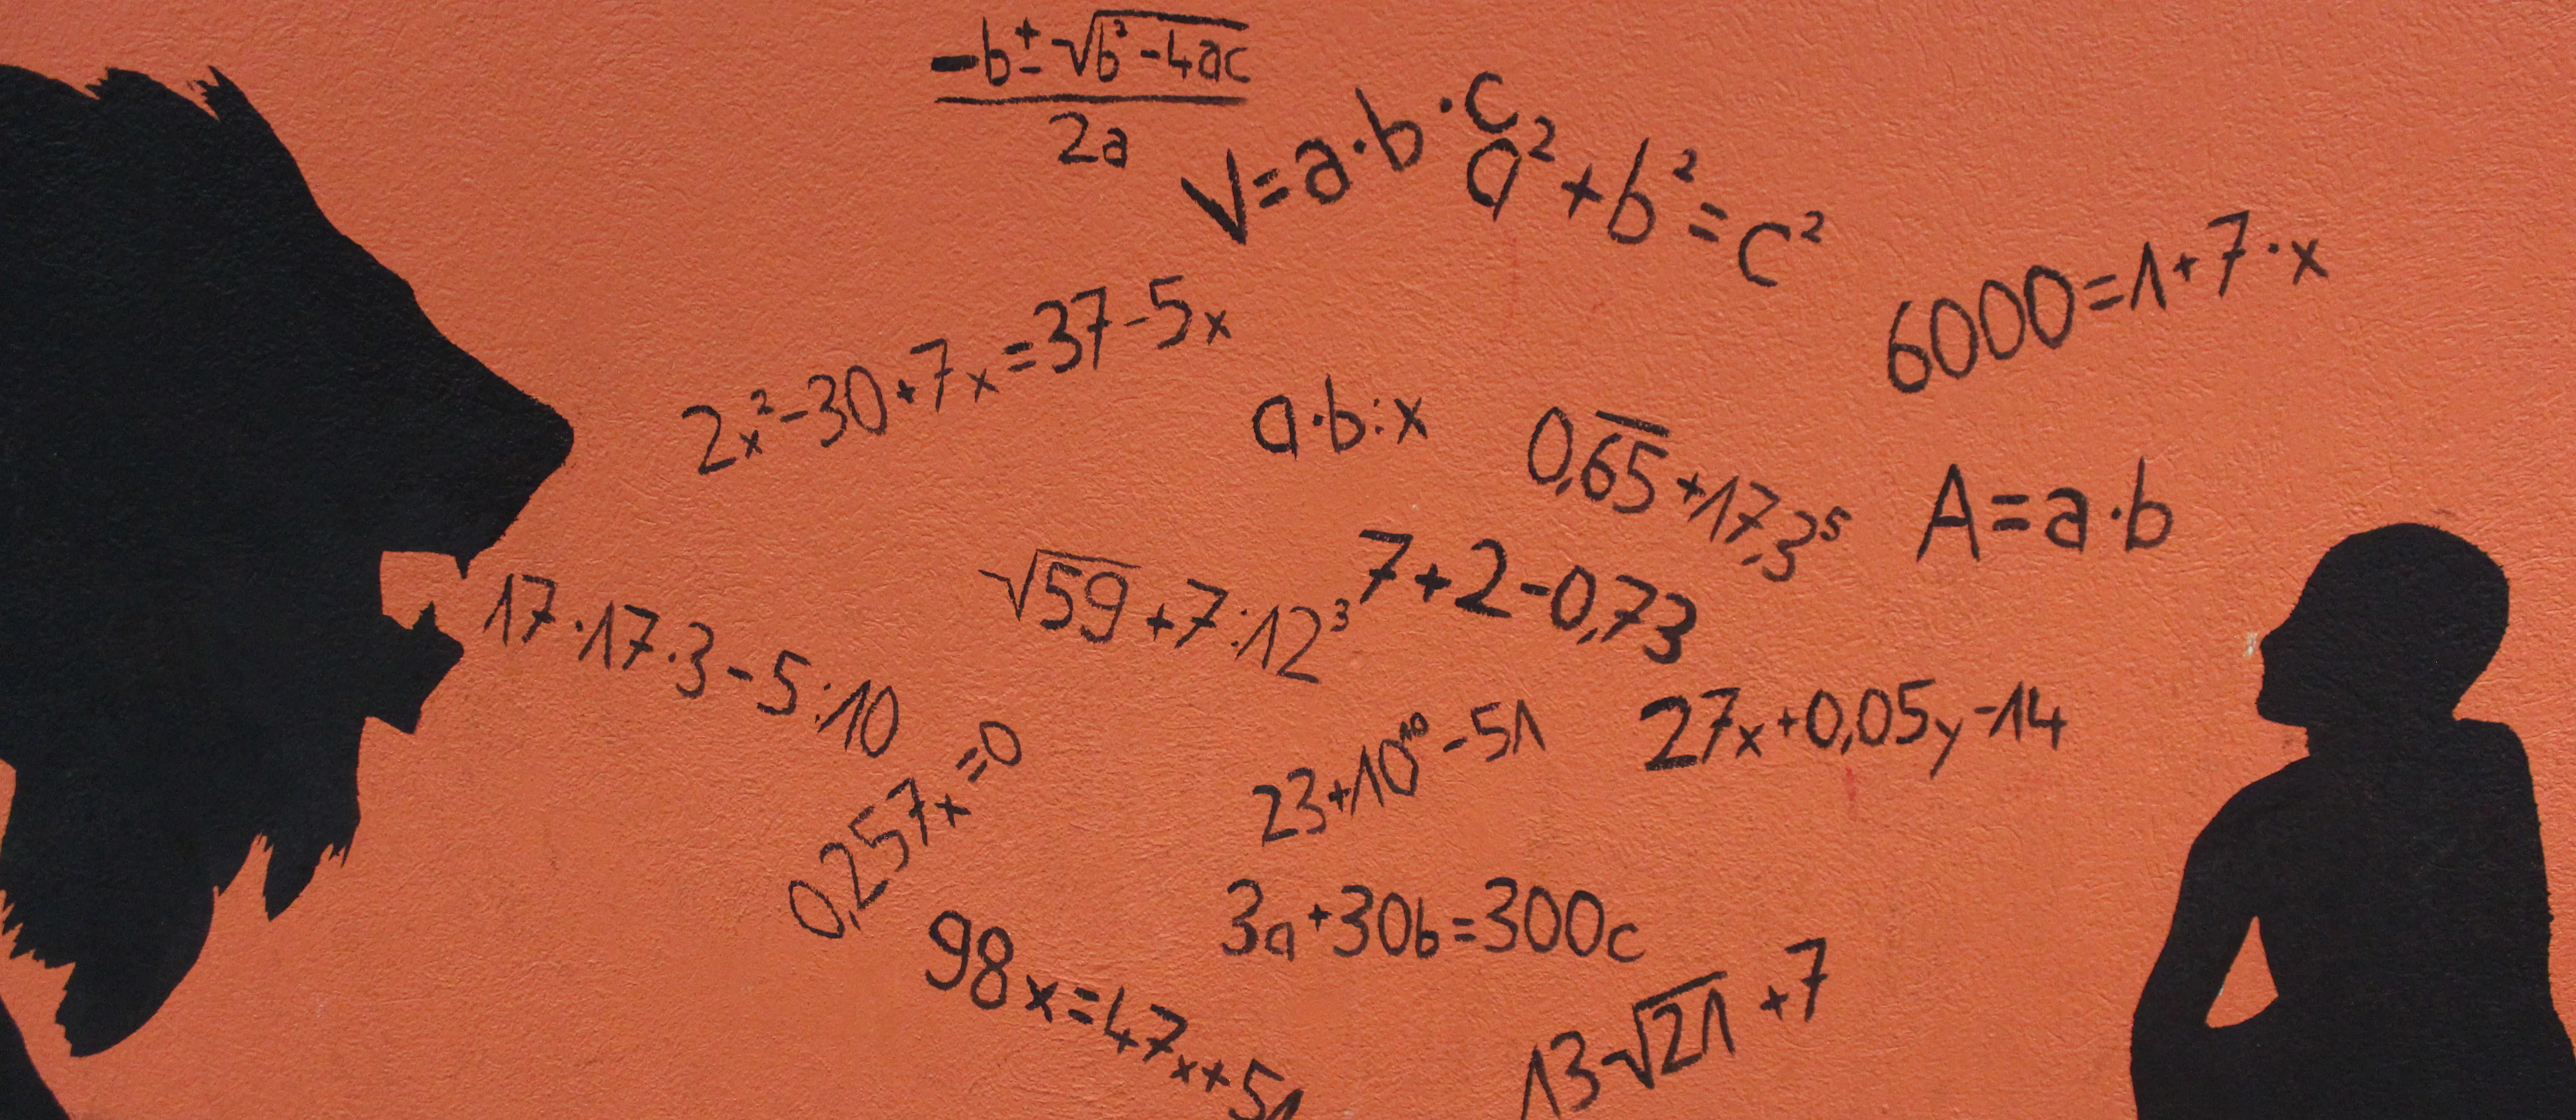 -b±√b²-4ac
2a
V=a·b·c
a²+b²=c²
6000=1+7·x
2x²-30+7x=37-5x
a·b:x
0,6̅5̅+17,3⁵
A=a·b
√59+7:12³
7+2-0,73
17·17·3-5:10
27x+0,05y-14
23+10¹⁰-51
0,257x=0
3a+30b=300c
98x=47x+51
13-√21+7